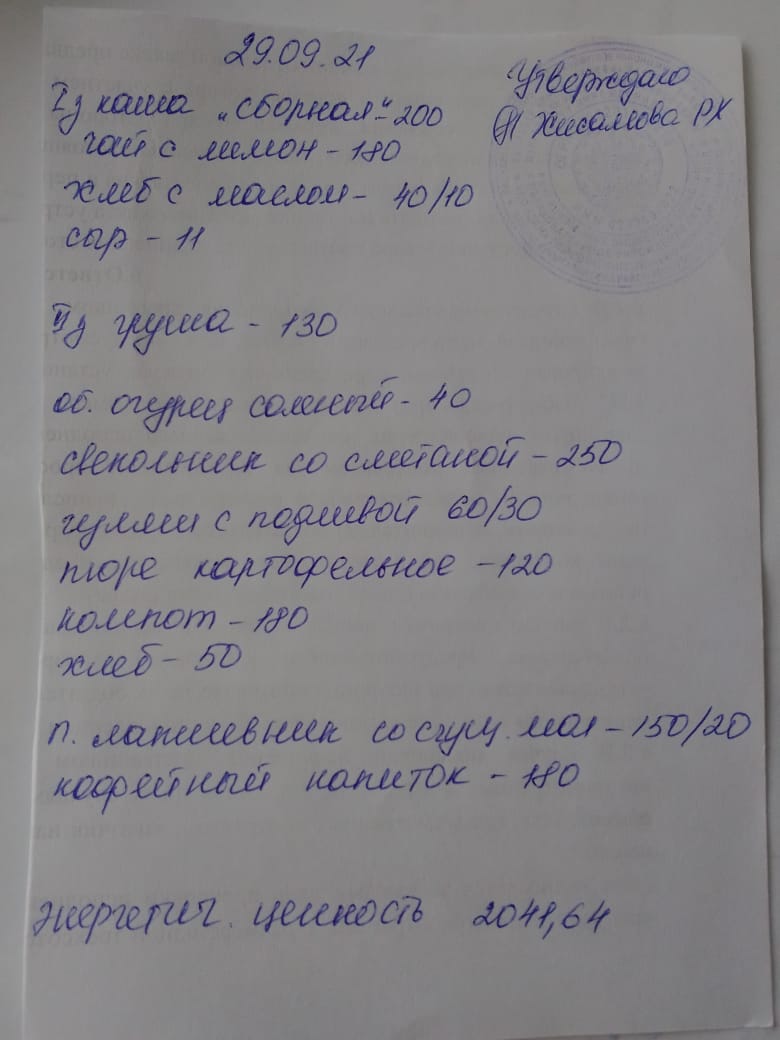 29.09.21
Утверждаю
Хисамова РХ
Iз каша „сборная" - 200
чай с лимон - 180
хлеб с маслом - 40/10
сыр - 11
IIз груша - 130
об. огурец соленый - 40
свекольник со сметаной - 250
гуляш с подливой 60/30
пюре картофельное - 120
компот - 180
хлеб - 50
п. лапшевник со сгущ. мол - 150/20
кофейный напиток - 180
Энергетич. ценность 2041,64